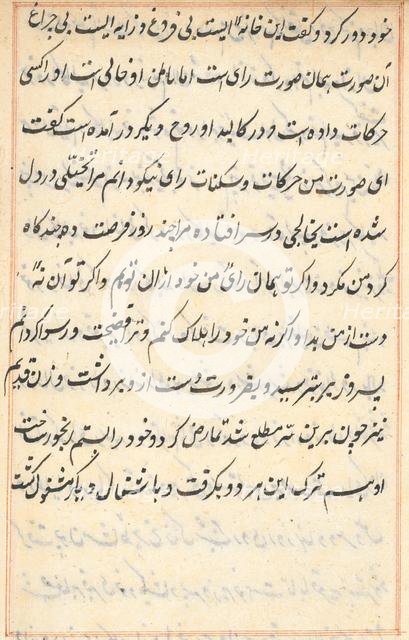 خود دور کرد و گفت این خانه ایست بی فروغ و زاویه ایست بی چراغ
آن صورت همان صورت رای است اما باطن او خالی است او را کسی
حرکات داده است و در کالبد او روح دیگر در آمده است گفت
ای صورت من حرکات و سکنات رای نیکو دانم مرا تخیلی در دل
شده است و خلجی در سر افتاده مرا چند روز فرصت ده چند گاه
کرد من مگرد و اگر تو همان رای من خود ازان تو ام و اگر تو آن نه
دست از من بدار و اگر نه من خود را هلاک کنم و ترا فضیحت و رسوا گردانم
پیروز بر سر رسید و بضرورت دست ازو برداشت و زن قدیم
نیز چون برین سر مطلع شد تمارض کرد و خود را رنجور ساخت
او هم ترک این هر دو بگرفت و باشغال دیگر مشغول گشت
Heritage